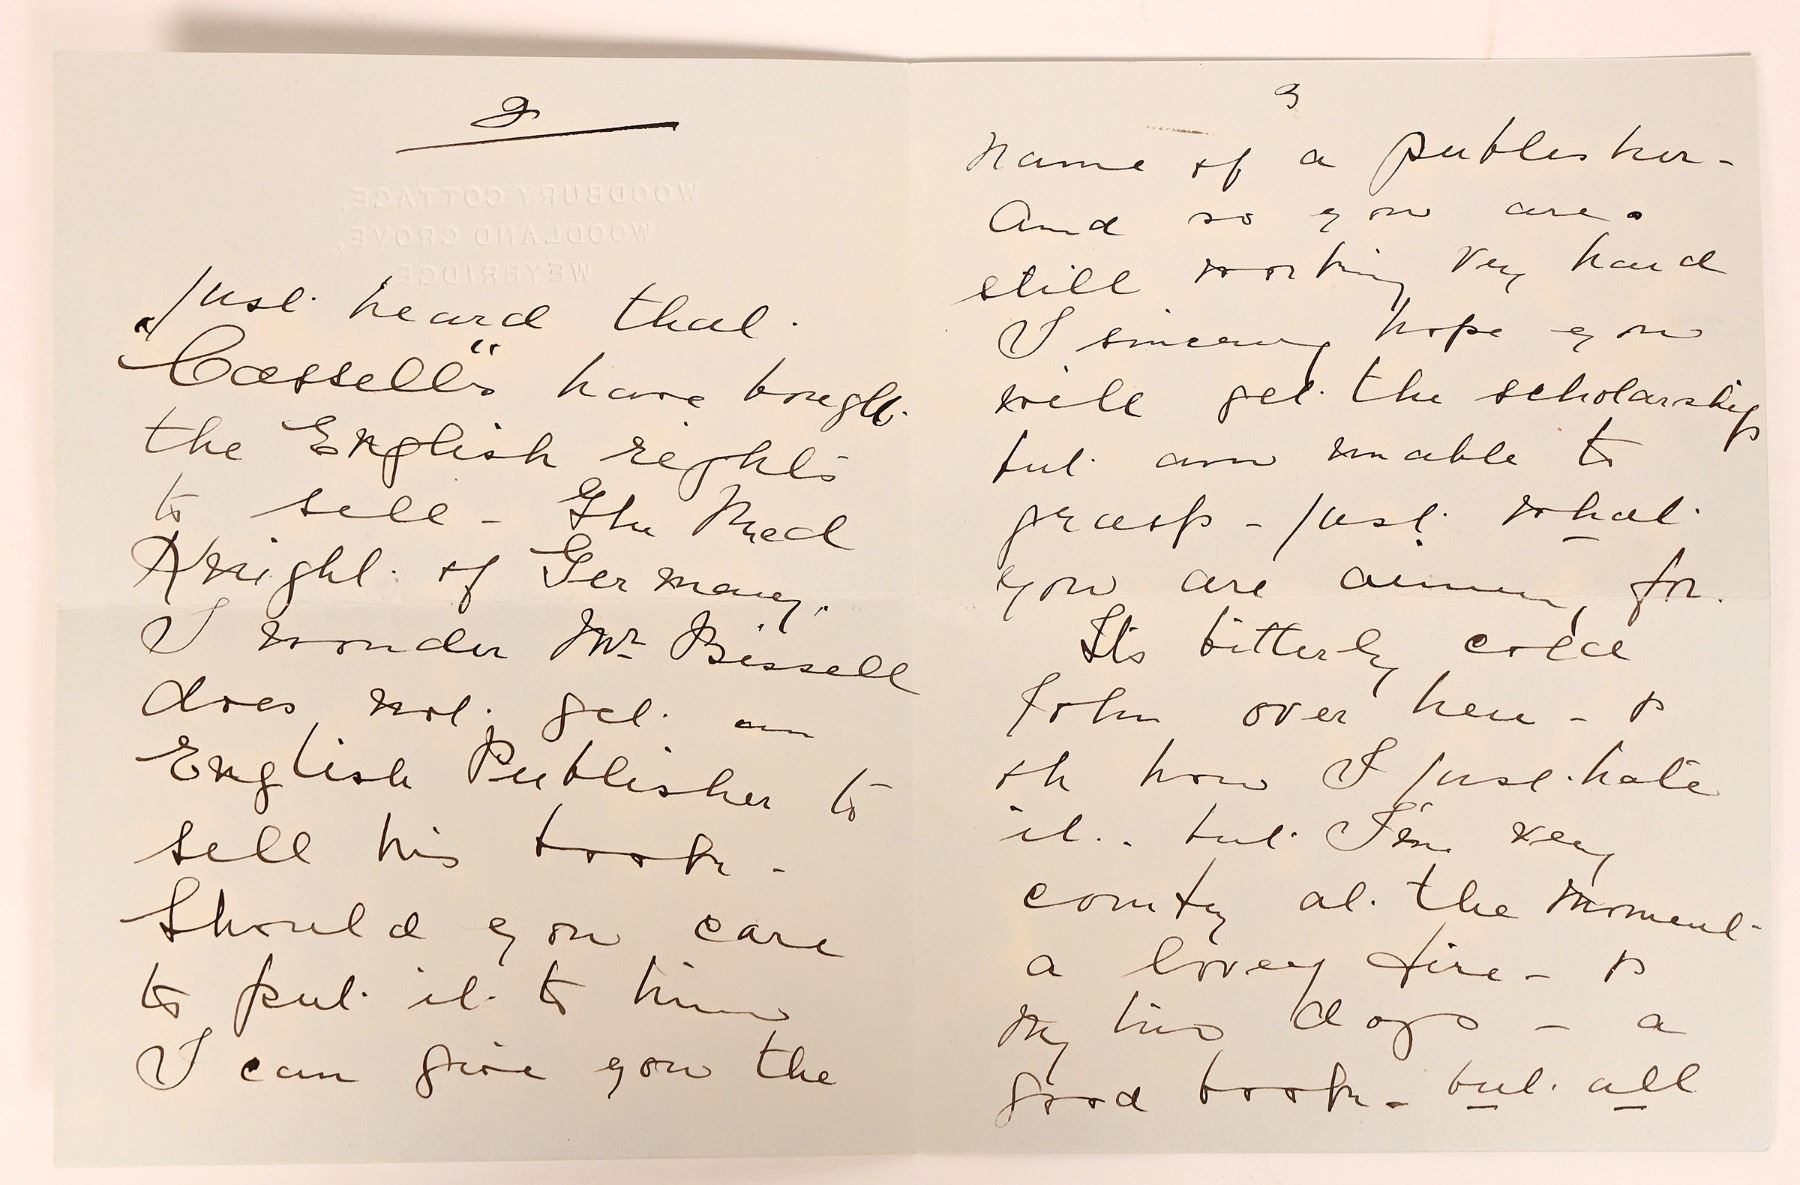 2
WOODBURY COTTAGE,
WOODLAND GROVE,
WEYBRIDGE
just heard that
"Cassell's" have bought
the English rights
to sell - The Red
Knight of Germany.
I wonder Mr Bissell
does not get an
English Publisher to
sell his book -
Should you care
to put it to him
I can give you the
3
name of a publisher -
And so you are
still working very hard
I sincerely hope you
will get the scholarship
but am unable to
grasp - just what
you are aiming for.
Its bitterly cold
John over here - &
oh how I just hate
it.. but I'm very
comfy at the moment
a lovely fire - &
my two dogs - a
good book - but all